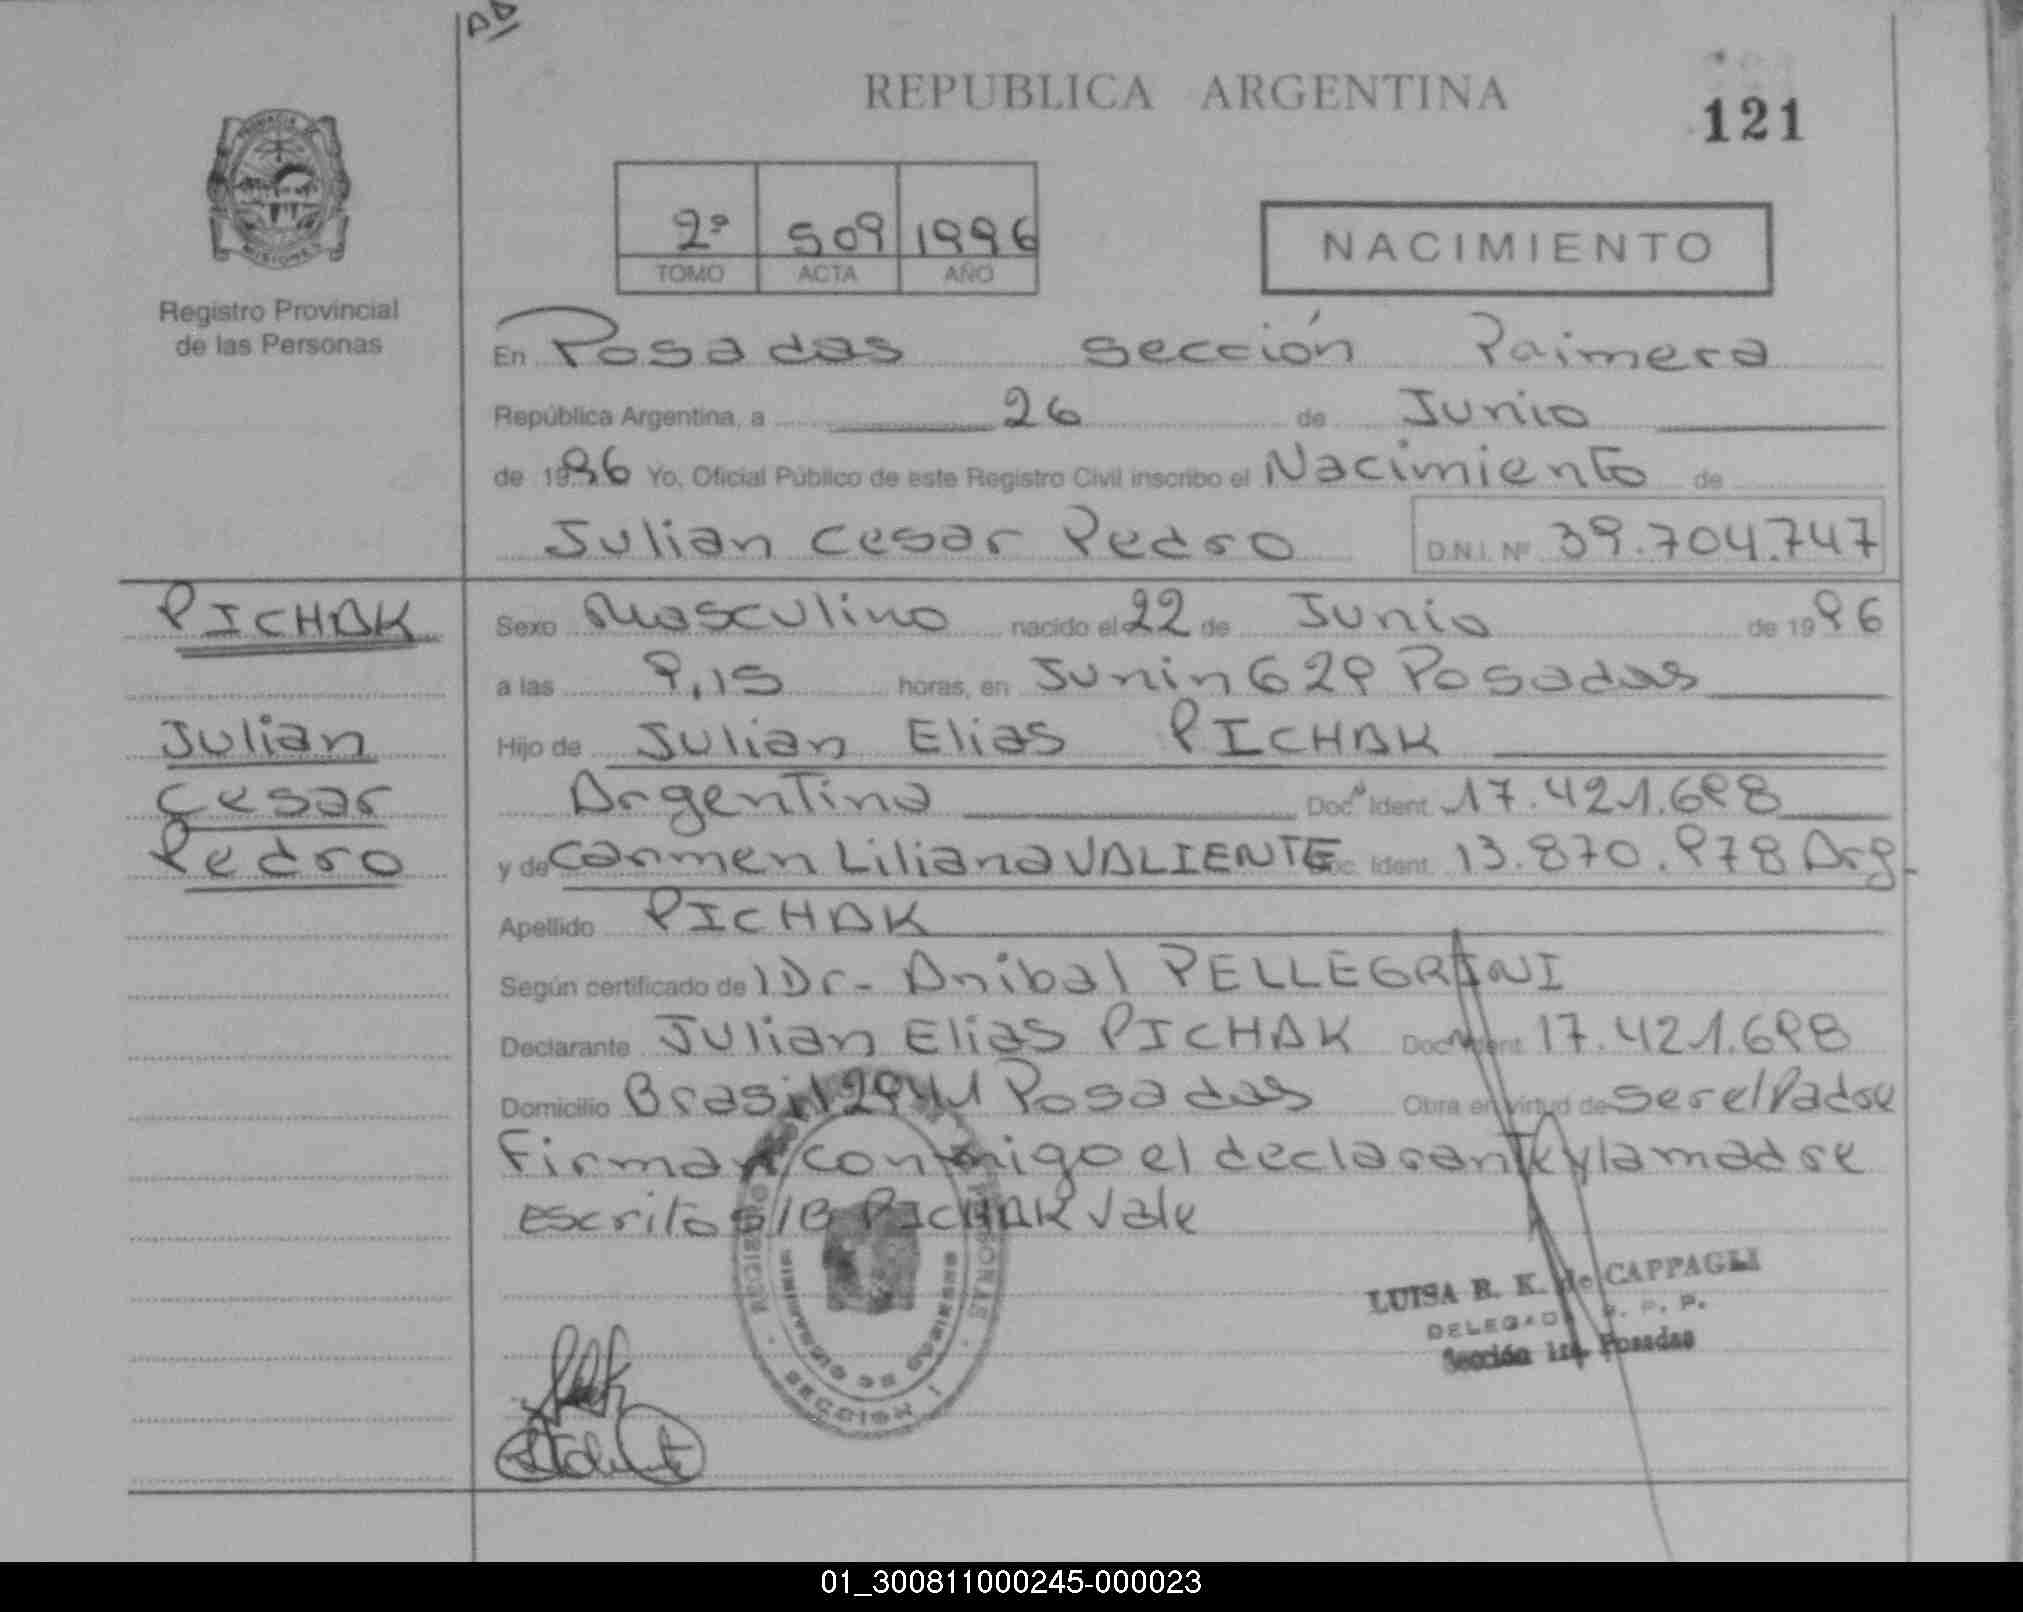 AD
REPUBLICA ARGENTINA
121
PROVINCIA DE
MISIONES
Registro Provincial
de las Personas
2º 509 1996
TOMO ACTA AÑO
NACIMIENTO
En Posadas sección Primera
República Argentina, a 26 de Junio
de 1996 Yo, Oficial Público de este Registro Civil inscribo el Nacimiento de
Julian Cesar Pedro D.N.I. Nº 39.704.747
PICHAK
Julian
Cesar
Pedro
Sexo Masculino nacido el 22 de Junio de 1996
a las 9,15 horas, en Junin 629 Posadas
Hijo de Julian Elias PICHAK
Argentina Docº Ident. 17.421.698
y de Carmen Liliana VALIENTE Doc. Ident. 13.870.978 Arg.
Apellido PICHAK
Según certificado del Dr- Anibal PELLEGRINI
Declarante Julian Elias PICHAK Doc Ident 17.421.698
Domicilio Brasil 2941 Posadas Obra en virtud de ser el Padre
Firman conmigo el declarante y la madre
escrito s/B PICHAK Vale
LUISA R. K. de CAPPAGLI
DELEGADA R. P. P.
Sección 1ra. Posadas
SECCION 1
01_300811000245-000023